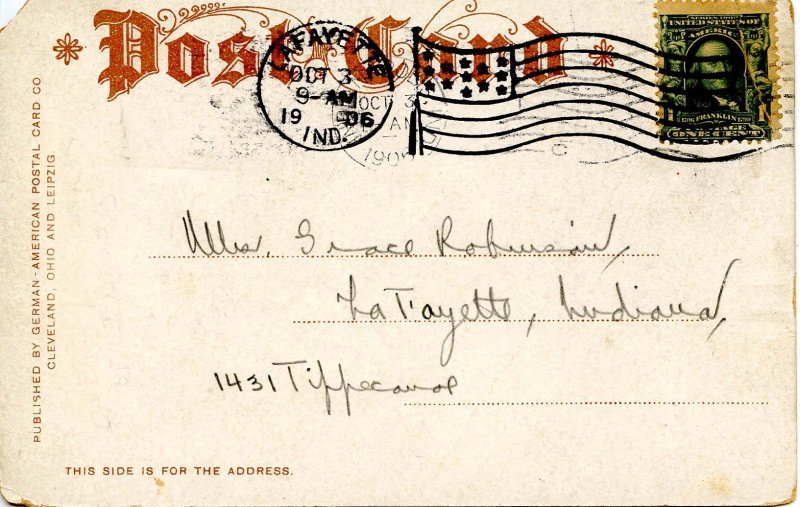 Post Card
LAFAYETTE
OCT 3
9-AM
1906
IND.
OCT 3
AM
190
SERIES 1902
UNITED STATES OF
AMERICA
1706 FRANKLIN 1790
ONE CENT
Miss. Grace Robinson,
LaFayette, Indiana,
1431 Tippecanoe
PUBLISHED BY GERMAN-AMERICAN POSTAL CARD CO.
CLEVELAND, OHIO AND LEIPZIG.
THIS SIDE IS FOR THE ADDRESS.